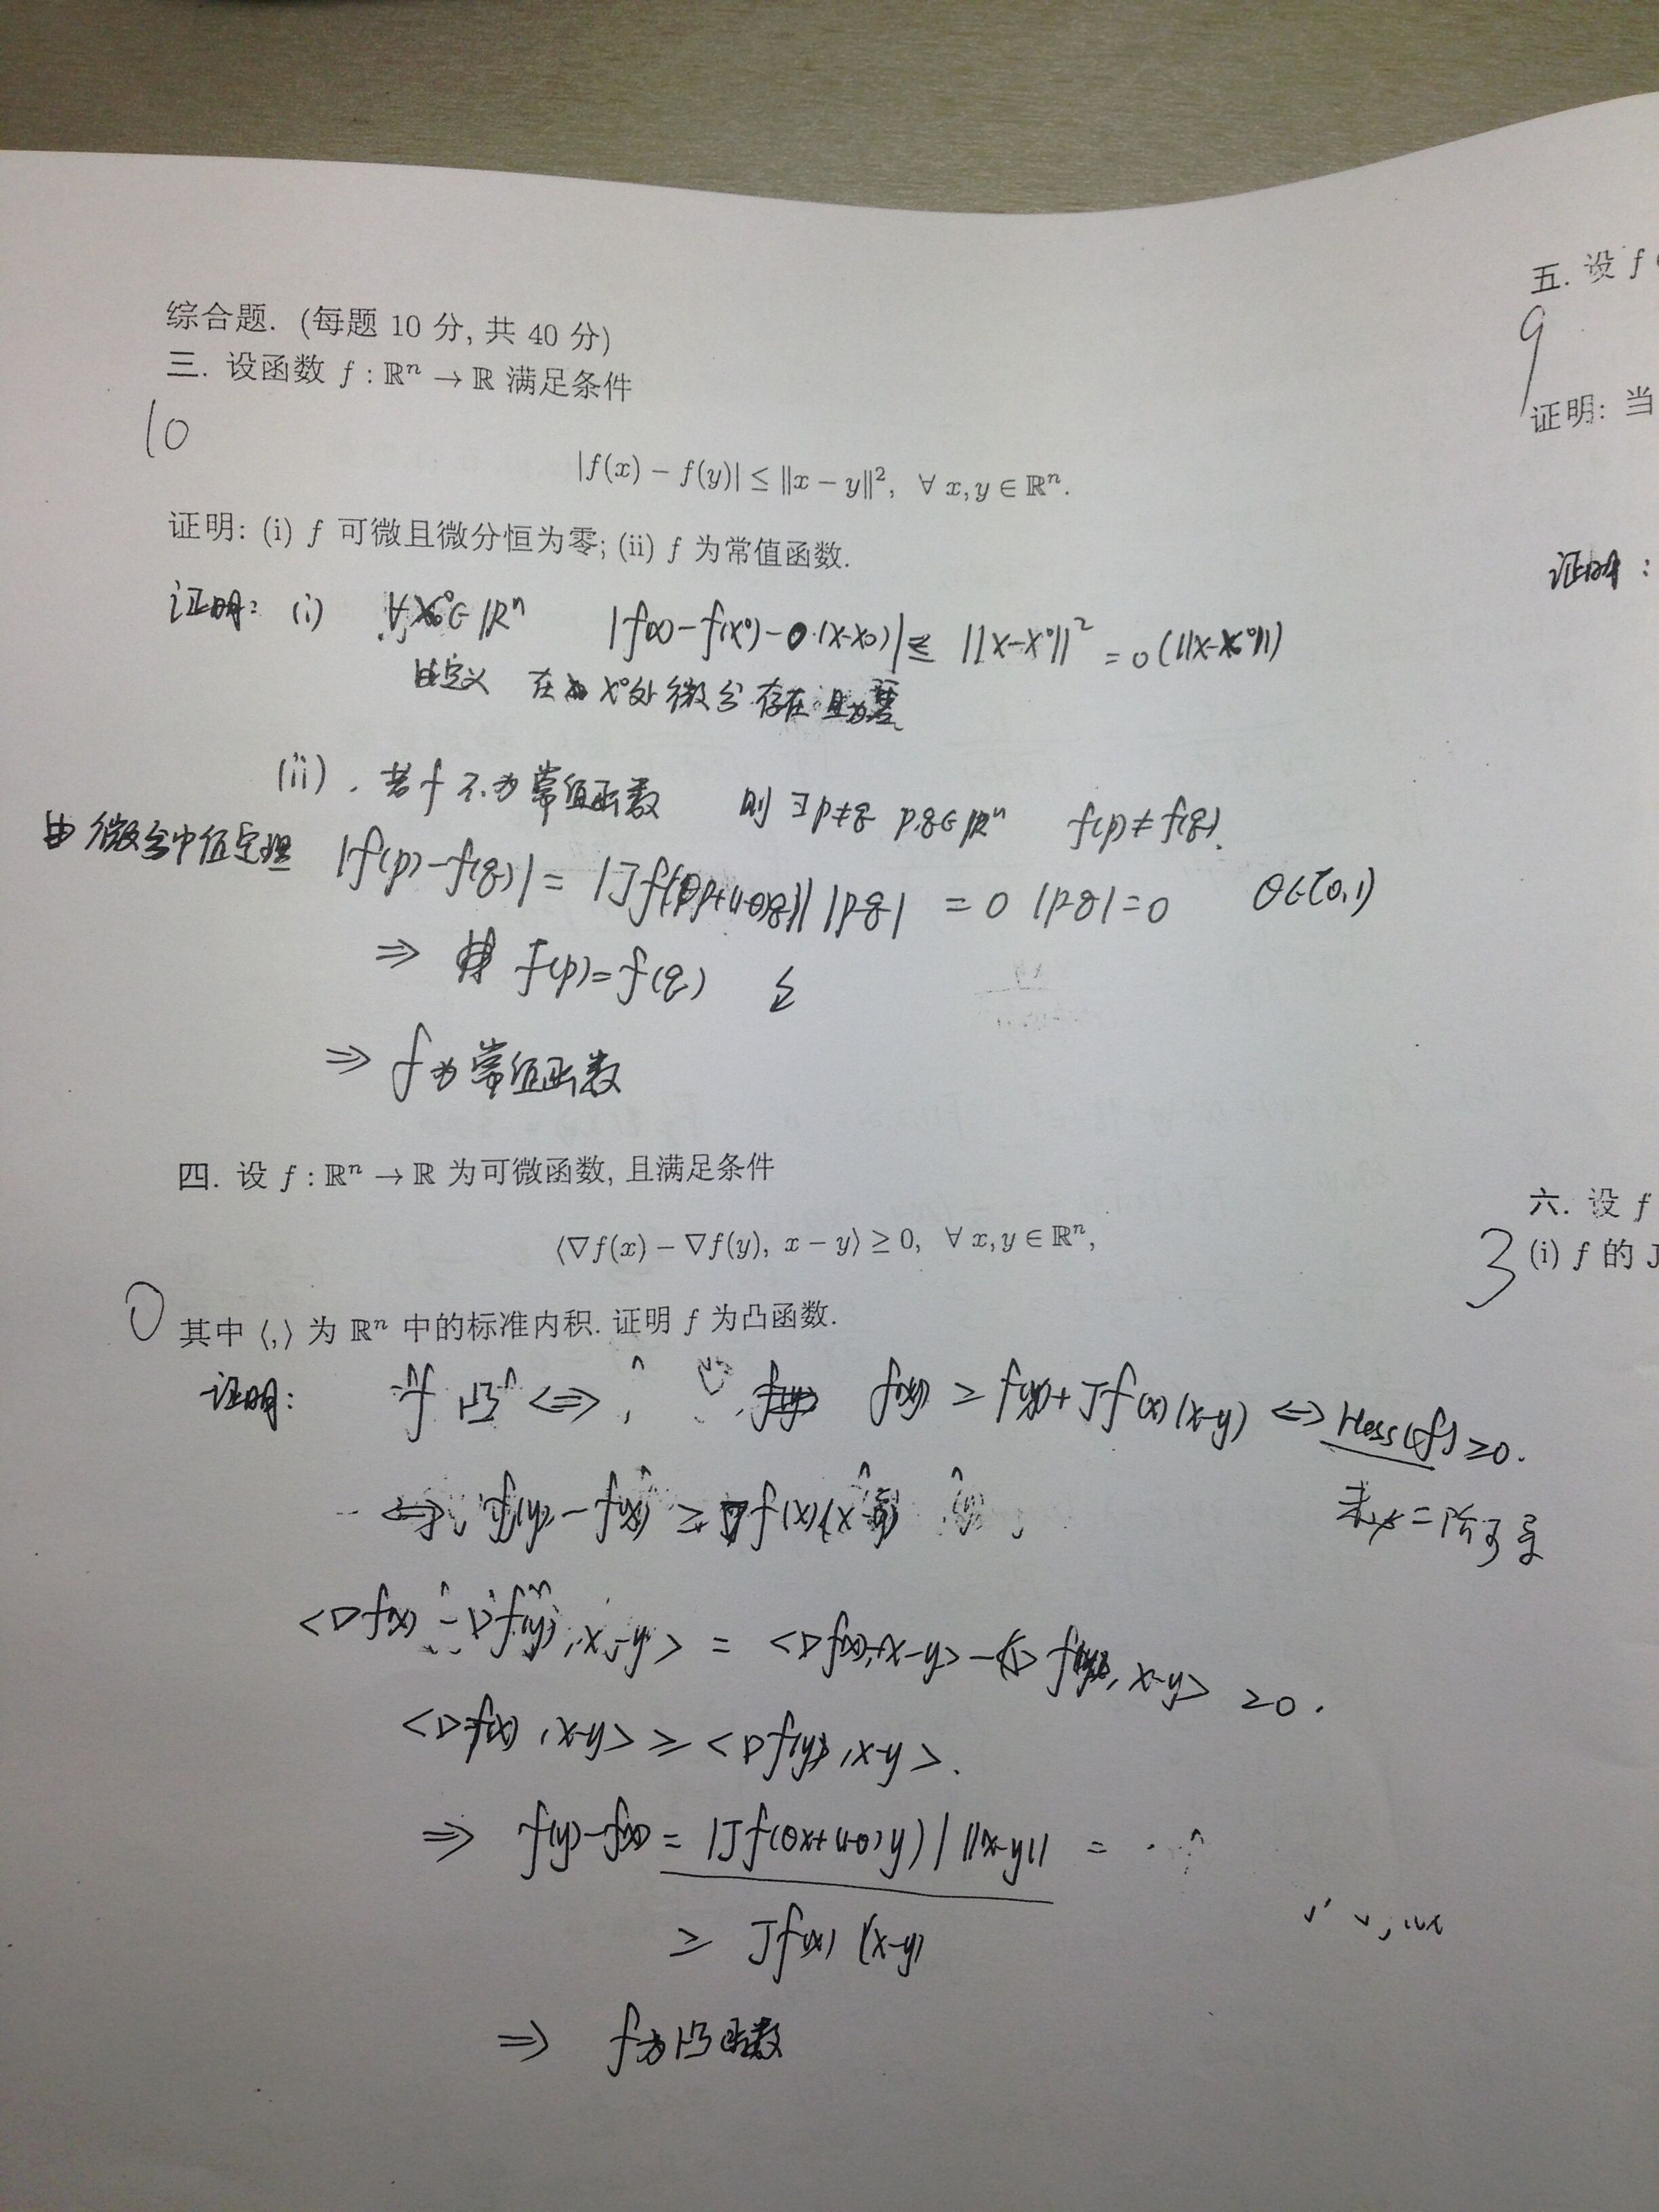 综合题. (每题 10 分, 共 40 分)
三. 设函数 f : ℝⁿ → ℝ 满足条件
10
|f(x) − f(y)| ≤ ‖x − y‖², ∀ x, y ∈ ℝⁿ.
证明: (i) f 可微且微分恒为零; (ii) f 为常值函数.
证明: (i) ∀x⁰∈ℝⁿ |f(x)−f(x⁰)−0·(x−x₀)| ≤ ||x−x⁰||² = o(||x−x⁰||)
由定义 在 x⁰处 微分存在 且为零
(ii). 若 f 不为常值函数 则 ∃p≠q p,q∈ℝⁿ f(p)≠f(q).
由微分中值定理 |f(p)−f(q)| = |Jf(θp+(1−θ)q)| |p−q| = 0 |p−q| = 0 θ∈(0,1)
⇒ f(p)=f(q)
⇒ f为常值函数
四. 设 f : ℝⁿ → ℝ 为可微函数, 且满足条件
⟨∇f(x) − ∇f(y), x − y⟩ ≥ 0, ∀ x, y ∈ ℝⁿ,
0
其中 ⟨,⟩ 为 ℝⁿ 中的标准内积. 证明 f 为凸函数.
证明: f 凸 ⟺ f(y) ≥ f(x)+Jf(x)(x−y) ⟺ Hess(f)≥0.
未必二阶可导
⟺ f(y)−f(x) ≥ ∇f(x)(x−y)
<∇f(x)−∇f(y), x−y> = <∇f(x), x−y>−<∇f(y), x−y> ≥0.
<∇f(x), x−y> ≥ <∇f(y), x−y>.
⇒ f(y)−f(x) = |Jf(θx+(1−θ)y)| ||x−y|| =
≥ Jf(x)(x−y)
⇒ f为凸函数
五. 设 f
9
证明: 当
证明:
六. 设 f
3
(i) f 的 J